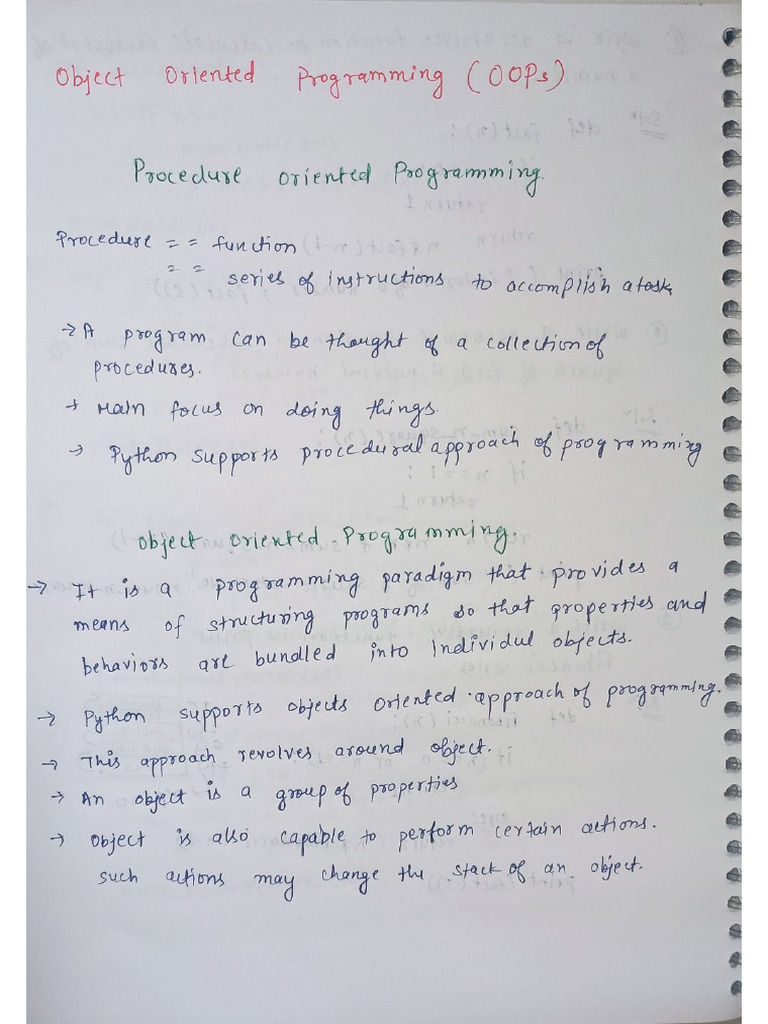 Object Oriented Programming (OOPs)
Procedure oriented Programming.
Procedure = = function
= = series of instructions to accomplish a task
→ A program can be thought of a collection of
procedures.
→ Main focus on doing things.
→ Python supports procedural approach of programming
Object Oriented Programming.
→ It is a programming paradigm that provides a
means of structuring programs so that properties and
behaviors are bundled into individul objects.
→ Python supports objects oriented approach of programming.
→ This approach revolves around object.
→ An object is a group of properties
→ Object is also capable to perform certain actions.
such actions may change the stack of an object.